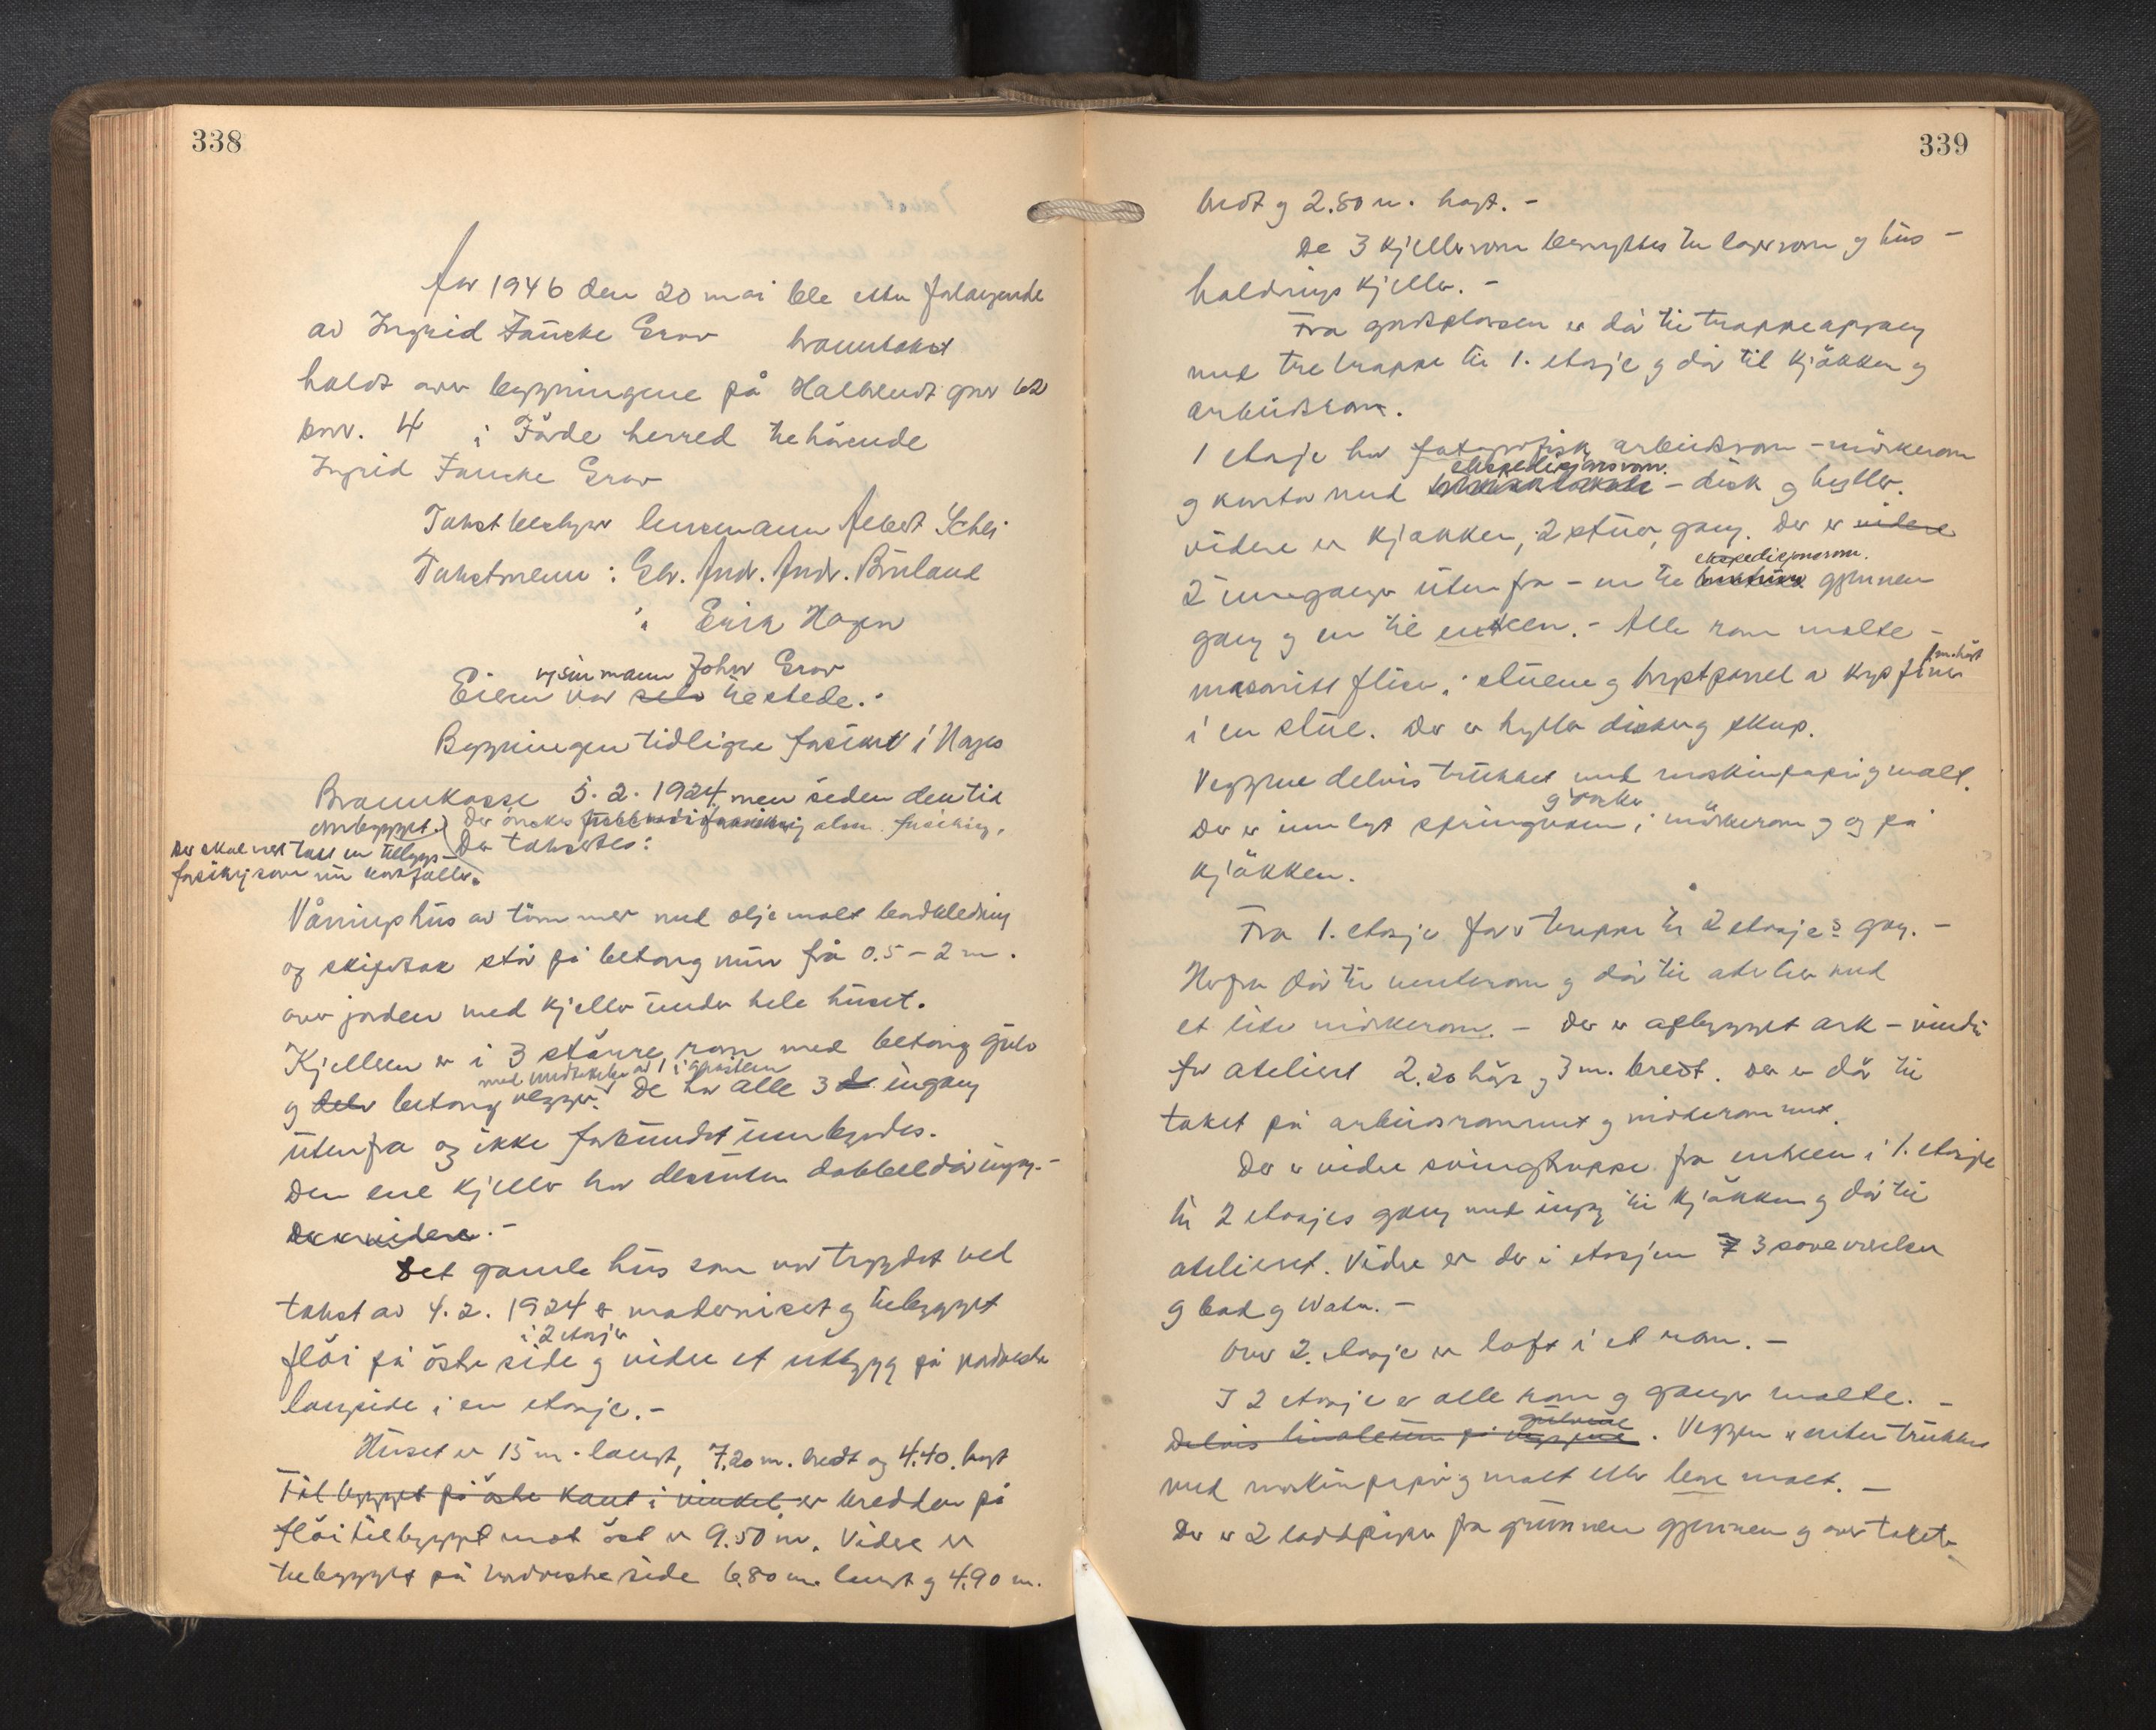 338
År 1946 den 20 mai ble etter forlangende
av Ingrid Fancke Grov branntakst
holdt over bygningene på Halbrendt gnr 62
bnr. 4 i Förde herred tilhörende
Ingrid Fancke Grov
Takstbestyrer lensmann Albert Schei
Takstmenn: Gbr. Andr. Andr. Bruland
Erik Hagen
og sin mann John Grov
Eieren var selv tilstede.
Bygningen tidligere forsikret i Norges
Brannkasse 5.2.1924 men siden den tid
ombygget. Der önskes alm. forsikring.
Der takseres:
Der skal vært tatt en tilleggs-
forsikring som nu bortfaller.
Våningshus av tömmer med oljemalt bordkledning
og skifertak står på betong mur fra 0.5 - 2 m.
over jorden med kjeller under hele huset.
Kjelleren er i 3 större rom med betong gulv
og delv betong vegger. De har alle 3 d ingang
med undtakelse av 1 i gråstein
utenfra og ikke forbundet innbyrdes.
Den ene kjeller har dessuten dobbeldör ingang.-
Der er videre.-
Det gamle hus som var trygdet ved
takst av 4.2.1924 er modernisert og tilbygget
i 2 etasjer
flöi på östre side og videre et utbygg på nordvestre
langside i en etasje.-
Huset er 15 m. langt, 7.20 m. bredt og 4.40. högt
Tilbygget på östre kant i vinkel er bredden på
flöitilbygget mot öst er 9.50 m. Videre er
tilbygget på nordvestre side 6.80 m. langt og 4.90 m.
339
bredt og 2.80 m. högt.-
De 3 kjellerrom benyttes til lagerrom og hus-
holdnings kjeller.-
Fra gårdsplassen er dör til trappeopgang
med tretrappe til 1. etasje og dör til kjökken og
arbeidsrom.
1 etasje har fotografisk arbeidsrom - mörkerom
ekspedisjonsrom.
og kontor med - disk og hyller.
videre er kjökken, 2 stuer, gang. Der er videre
ekspedisjonsrom.
2 innganger utenfra - en til gjennem
gang og en til entreen. - Alle rom malte -
masonitt fliser i stuene og brystpanel av kryssfiner
1 m. högt
i en stue. Der er hyller disker og skap.
Veggene delvis trukket med maskinpapir og malt.
og vasker
Der er innlagt springvann i mörkerom og og på
kjökken.
Fra 1. etasje förer trappe til 2 etasjes gang.-
Herfra dör til venterom og dör til atelier med
et lite mörkerom. - Der er opbygget ark - vindu
for atelieret 2.20 höi og 3 m. bredt. Der er dör til
taket på arbeidsrommet og mörkerommet.
Der er videre svingtrappe fra entreen i 1. etasje
til 2 etasjes gang med ingang til kjökken og dör til
atelieret. Videre er der i etasjen 3 soveværelser
og bad og Water.-
Over 2. etasje er loft i et rom.-
I 2 etasje er alle rom og ganger malte.-
gulvene
Delvis linoleum på veggene. Veggene er enten trukket
med maskinpapir og malt eller bare malt.-
Der er 2 ildpiper fra grunnen gjennem og over taket.-